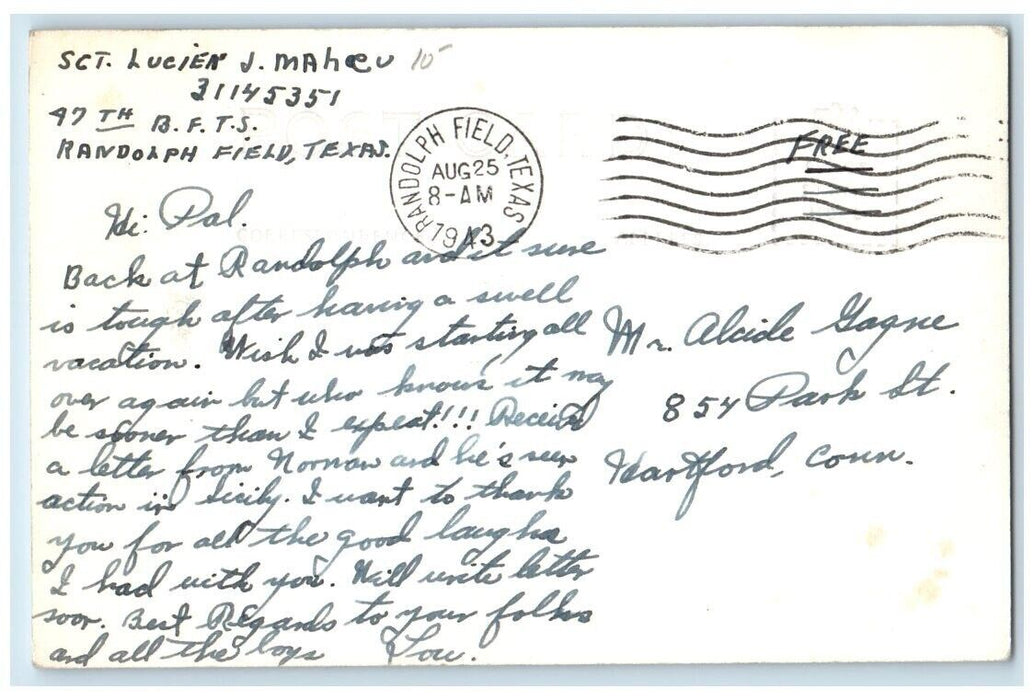 SGT. LUCIEN J. MAHEU 10
31145351
47 TH B.F.T.S.
RANDOLPH FIELD, TEXAS.
RANDOLPH FIELD, TEXAS
AUG 25
8-AM
1943
FREE
Hi: Pal.
Back at Randolph and it sure
is tough after having a swell
vacation. Wish I was starting all
over again but who knows it may
be sooner than I expect!!! Received
a letter from Norman and he's seen
action in Sicily. I want to thank
you for all the good laughs
I had with you. Will write letter
soon. Best Regards to your folks
and all the boys Lou.
Mr. Alcide Gagne
854 Park St.
Hartford, Conn.